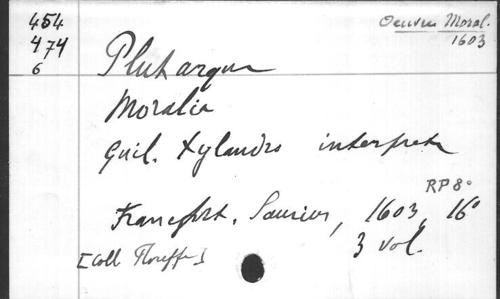 454
474
6
Oeuvres Moral.
1603
Plutarque
Moralia
Guil. Xylandro interprete
RP 8°
Francfort, Saurius, 1603, 16°
3 vol.
[Coll.